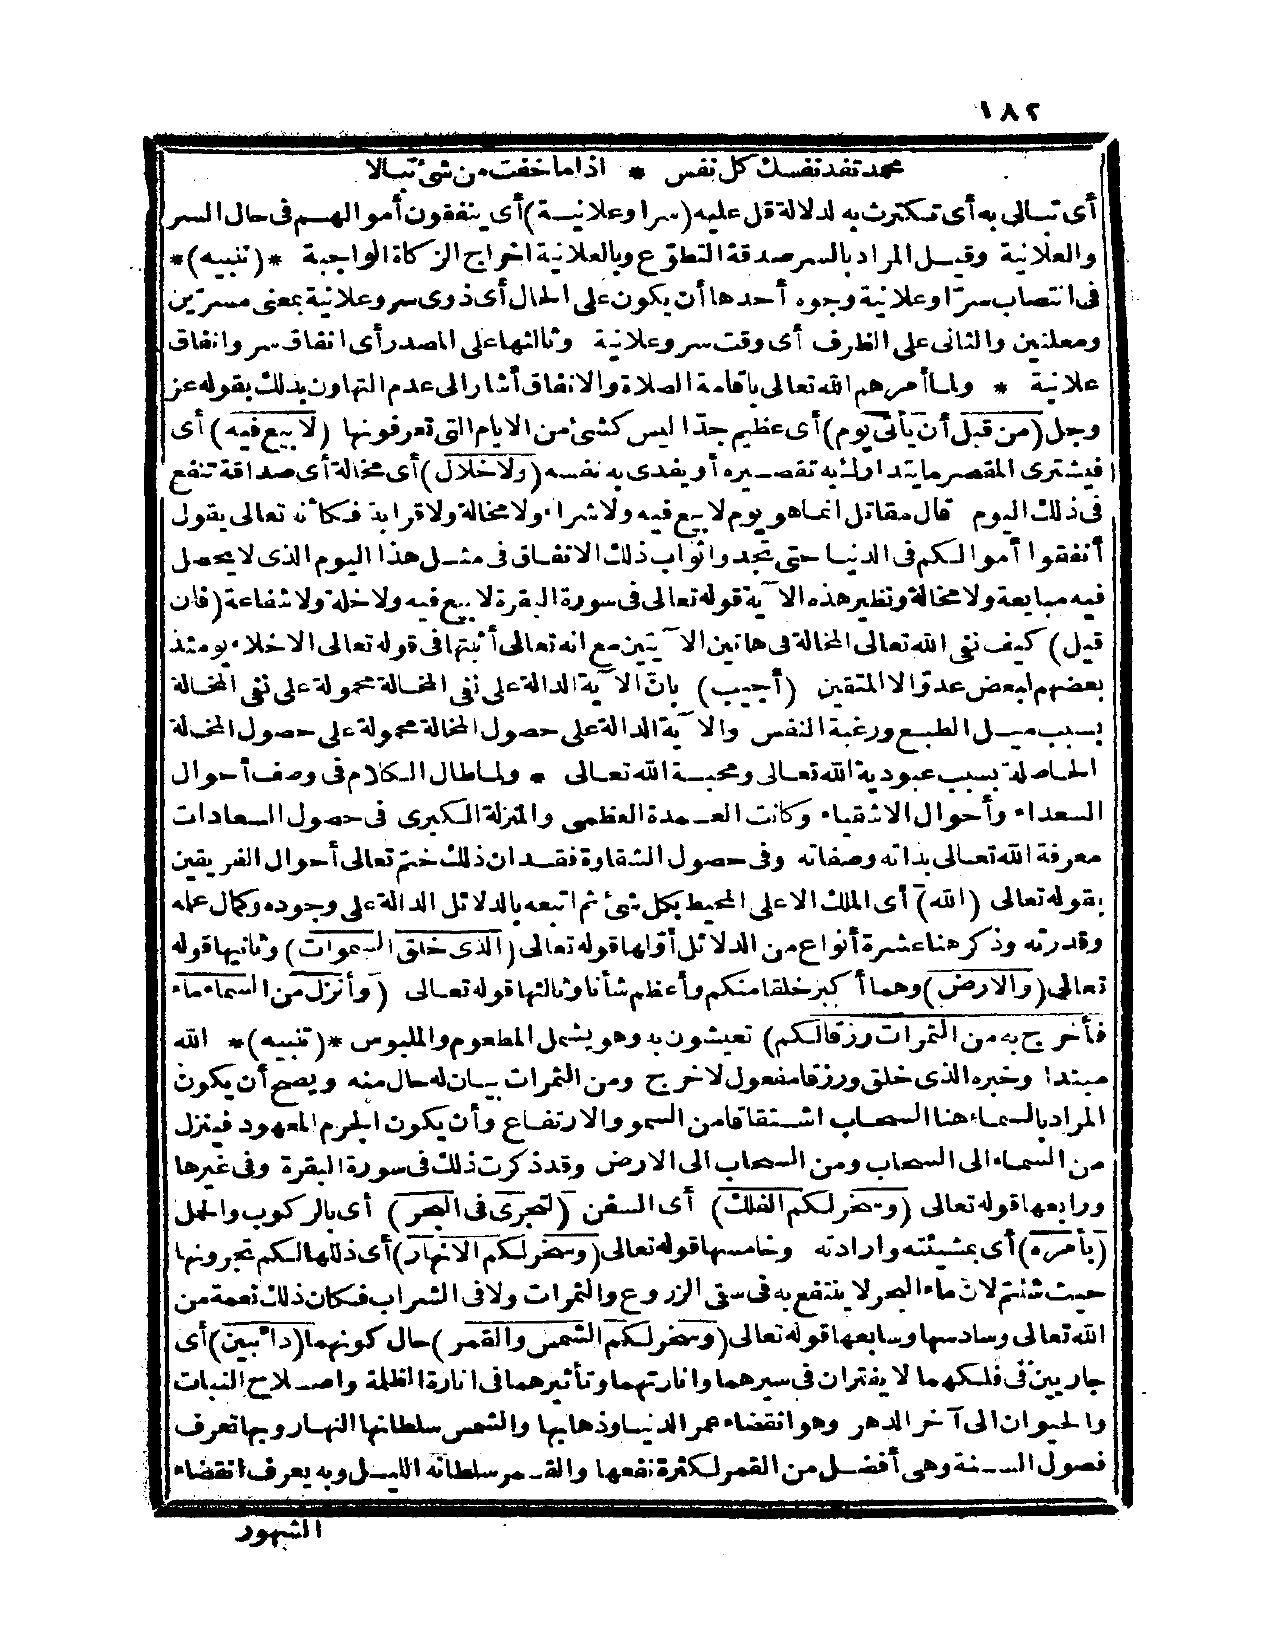 ١٨٢
محمد تفد نفسك كل نفس * اذا ما خفت من شئ تبالا
أى تبالى به أى تكترث به لدلالة قل عليه (سرا وعلانية) أى ينفقون أموالهم فى حال السر
والعلانية وقيل المراد بالسر صدقة التطوّع وبالعلانية اخراج الزكاة الواجبة *(تنبيه)*
فى انتصاب سرّا وعلانية وجوه أحدها أن يكون على الحال أى ذوى سر وعلانية بمعنى مسرّين
ومعلنين والثانى على الظرف أى وقت سر وعلانية وثالثها على المصدر أى انفاق سر وانفاق
علانية * ولما أمرهم الله تعالى باقامة الصلاة والانفاق أشار الى عدم التهاون بذلك بقوله عز
وجل (من قبل أن يأتى يوم) أى عظيم جدّا ليس كشئ من الايام التى تعرفونها (لا بيع فيه) أى
فيشترى المقصر ما يتدارك به تقصيره أو يفدى به نفسه (ولا خلال) أى مخالة أى صداقة تنفع
فى ذلك اليوم قال مقاتل انما هو يوم لا بيع فيه ولا شراء ولا مخالة ولا قرابة فكأنه تعالى يقول
أنفقوا أموالكم فى الدنيا حتى تجدوا ثواب ذلك الانفاق فى مثل هذا اليوم الذى لا يحصل
فيه مبايعة ولا مخالة ونظير هذه الآية قوله تعالى فى سورة البقرة لا بيع فيه ولا خلة ولا شفاعة (فان
قيل) كيف نفى الله تعالى المخالة فى هاتين الآيتين مع انه تعالى أثبتها فى قوله تعالى الاخلاء يومئذ
بعضهم لبعض عدوّ الا المتقين (أجيب) بانّ الآية الدالة على نفى المخالة محمولة على نفى المخالة
بسبب ميل الطبع ورغبة النفس والآية الدالة على حصول المخالة محمولة على حصول المخالة
الحاصلة بسبب عبودية الله تعالى ومحبة الله تعالى * ولما طال الكلام فى وصف أحوال
السعداء وأحوال الاشقياء وكانت العمدة العظمى والمنزلة الكبرى فى حصول السعادات
معرفة الله تعالى بذاته وصفاته وفى حصول الشقاوة فقدان ذلك ختم تعالى أحوال الفريقين
بقوله تعالى (الله) أى الملك الاعلى المحيط بكل شئ ثم اتبعه بالدلائل الدالة على وجوده وكمال علمه
وقدرته وذكر هنا عشرة أنواع من الدلائل أوّلها قوله تعالى (الذى خلق السموات) وثانيها قوله
تعالى (والارض) وهما أكبر خلقا منكم وأعظم شأنا وثالثها قوله تعالى (وأنزل من السماء ماء
فأخرج به من الثمرات رزقا لكم) تعيشون به وهو يشمل المطعوم والملبوس *(تنبيه)* الله
مبتدا وخبره الذى خلق ورزقا مفعول لاخرج ومن الثمرات بيان له حال منه ويصح أن يكون
المراد بالسماء هنا السحاب اشتقاقا من السمو والارتفاع وأن يكون الجرم المعهود فينزل
من السماء الى السحاب ومن السحاب الى الارض وقد ذكرت ذلك فى سورة البقرة وفى غيرها
ورابعها قوله تعالى (وسخر لكم الفلك) أى السفن (لتجرى فى البحر) أى بالركوب والحمل
(بأمره) أى بمشيئته وارادته وخامسها قوله تعالى (وسخر لكم الانهار) أى ذللها لكم تجرونها
حيث شئتم لانّ ماء البحر لا ينتفع به فى سقى الزروع والثمرات ولا فى الشراب فكان ذلك نعمة من
الله تعالى وسادسها وسابعها قوله تعالى (وسخر لكم الشمس والقمر) حال كونهما (دائبين) أى
جاريين فى فلكهما لا يفتران فى سيرهما وانارتهما وتأثيرهما فى انارة الظلمة واصلاح النبات
والحيوان الى آخر الدهر وهو انقضاء عمر الدنيا وذهابها والشمس سلطانها النهار وبها تعرف
فصول السنة وهى أفضل من القمر لكثرة نفعها والقمر سلطانه الليل وبه يعرف انقضاء
الشهور